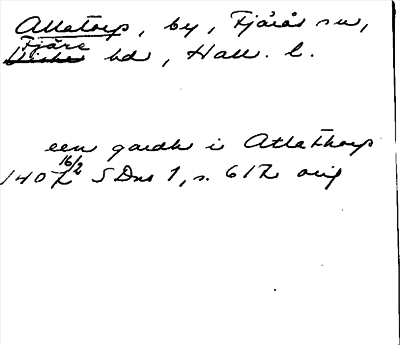 Allatorp, by, Fjärås sn,
Fjäre
hd, Hall. l.
een gardh i Atlathorp
1407 16/2 SDns 1, s. 617 orig